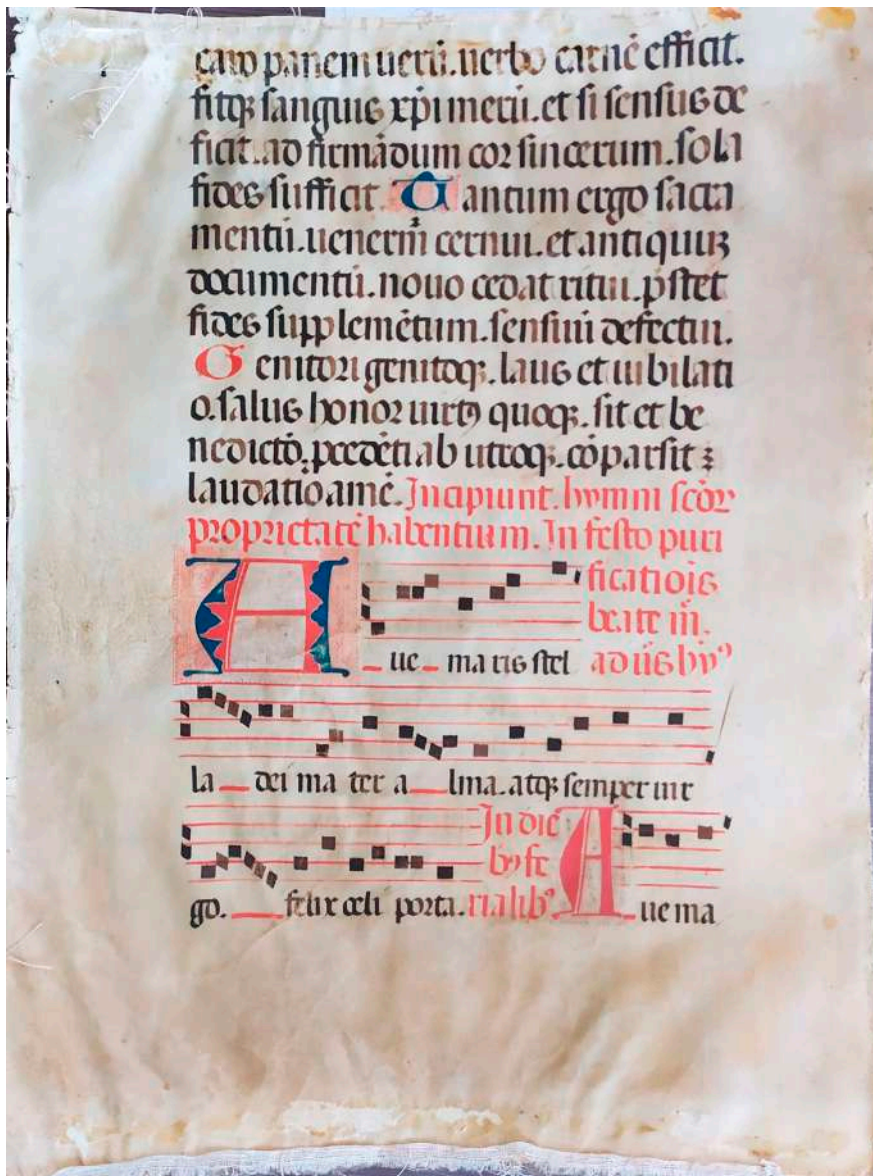 caro panem uerū. uerbo carnē efficit.
fitqꝫ sanguis xp̄i merū. et si sensus de
ficit. ad firmādum cor sincerum. sola
fides sufficit. Tantum ergo sacra
mentū. uenerem̄ cernui. et antiquuꝫ
documentū. nouo cedat ritui. p̄stet
fides supplemētum. sensuui defectui.
Genitori genitoqꝫ. laus et iubilati
o. salus honor uirtꝰ quoqꝫ. sit et be
nedictō. procedēti ab utroqꝫ. cōpar sit ⁊
laudatio amē. Incipiunt. hymni scōꝝ
proprietatē habentium. In festo puri
ficatiōis
beate m̄.
A ue ma ris stel ad ūs hyꝰ
la dei ma ter a lma. atqꝫ semper uir
In diē
bꝰ fe
go. felix celi porta. rialibꝰ A ue ma